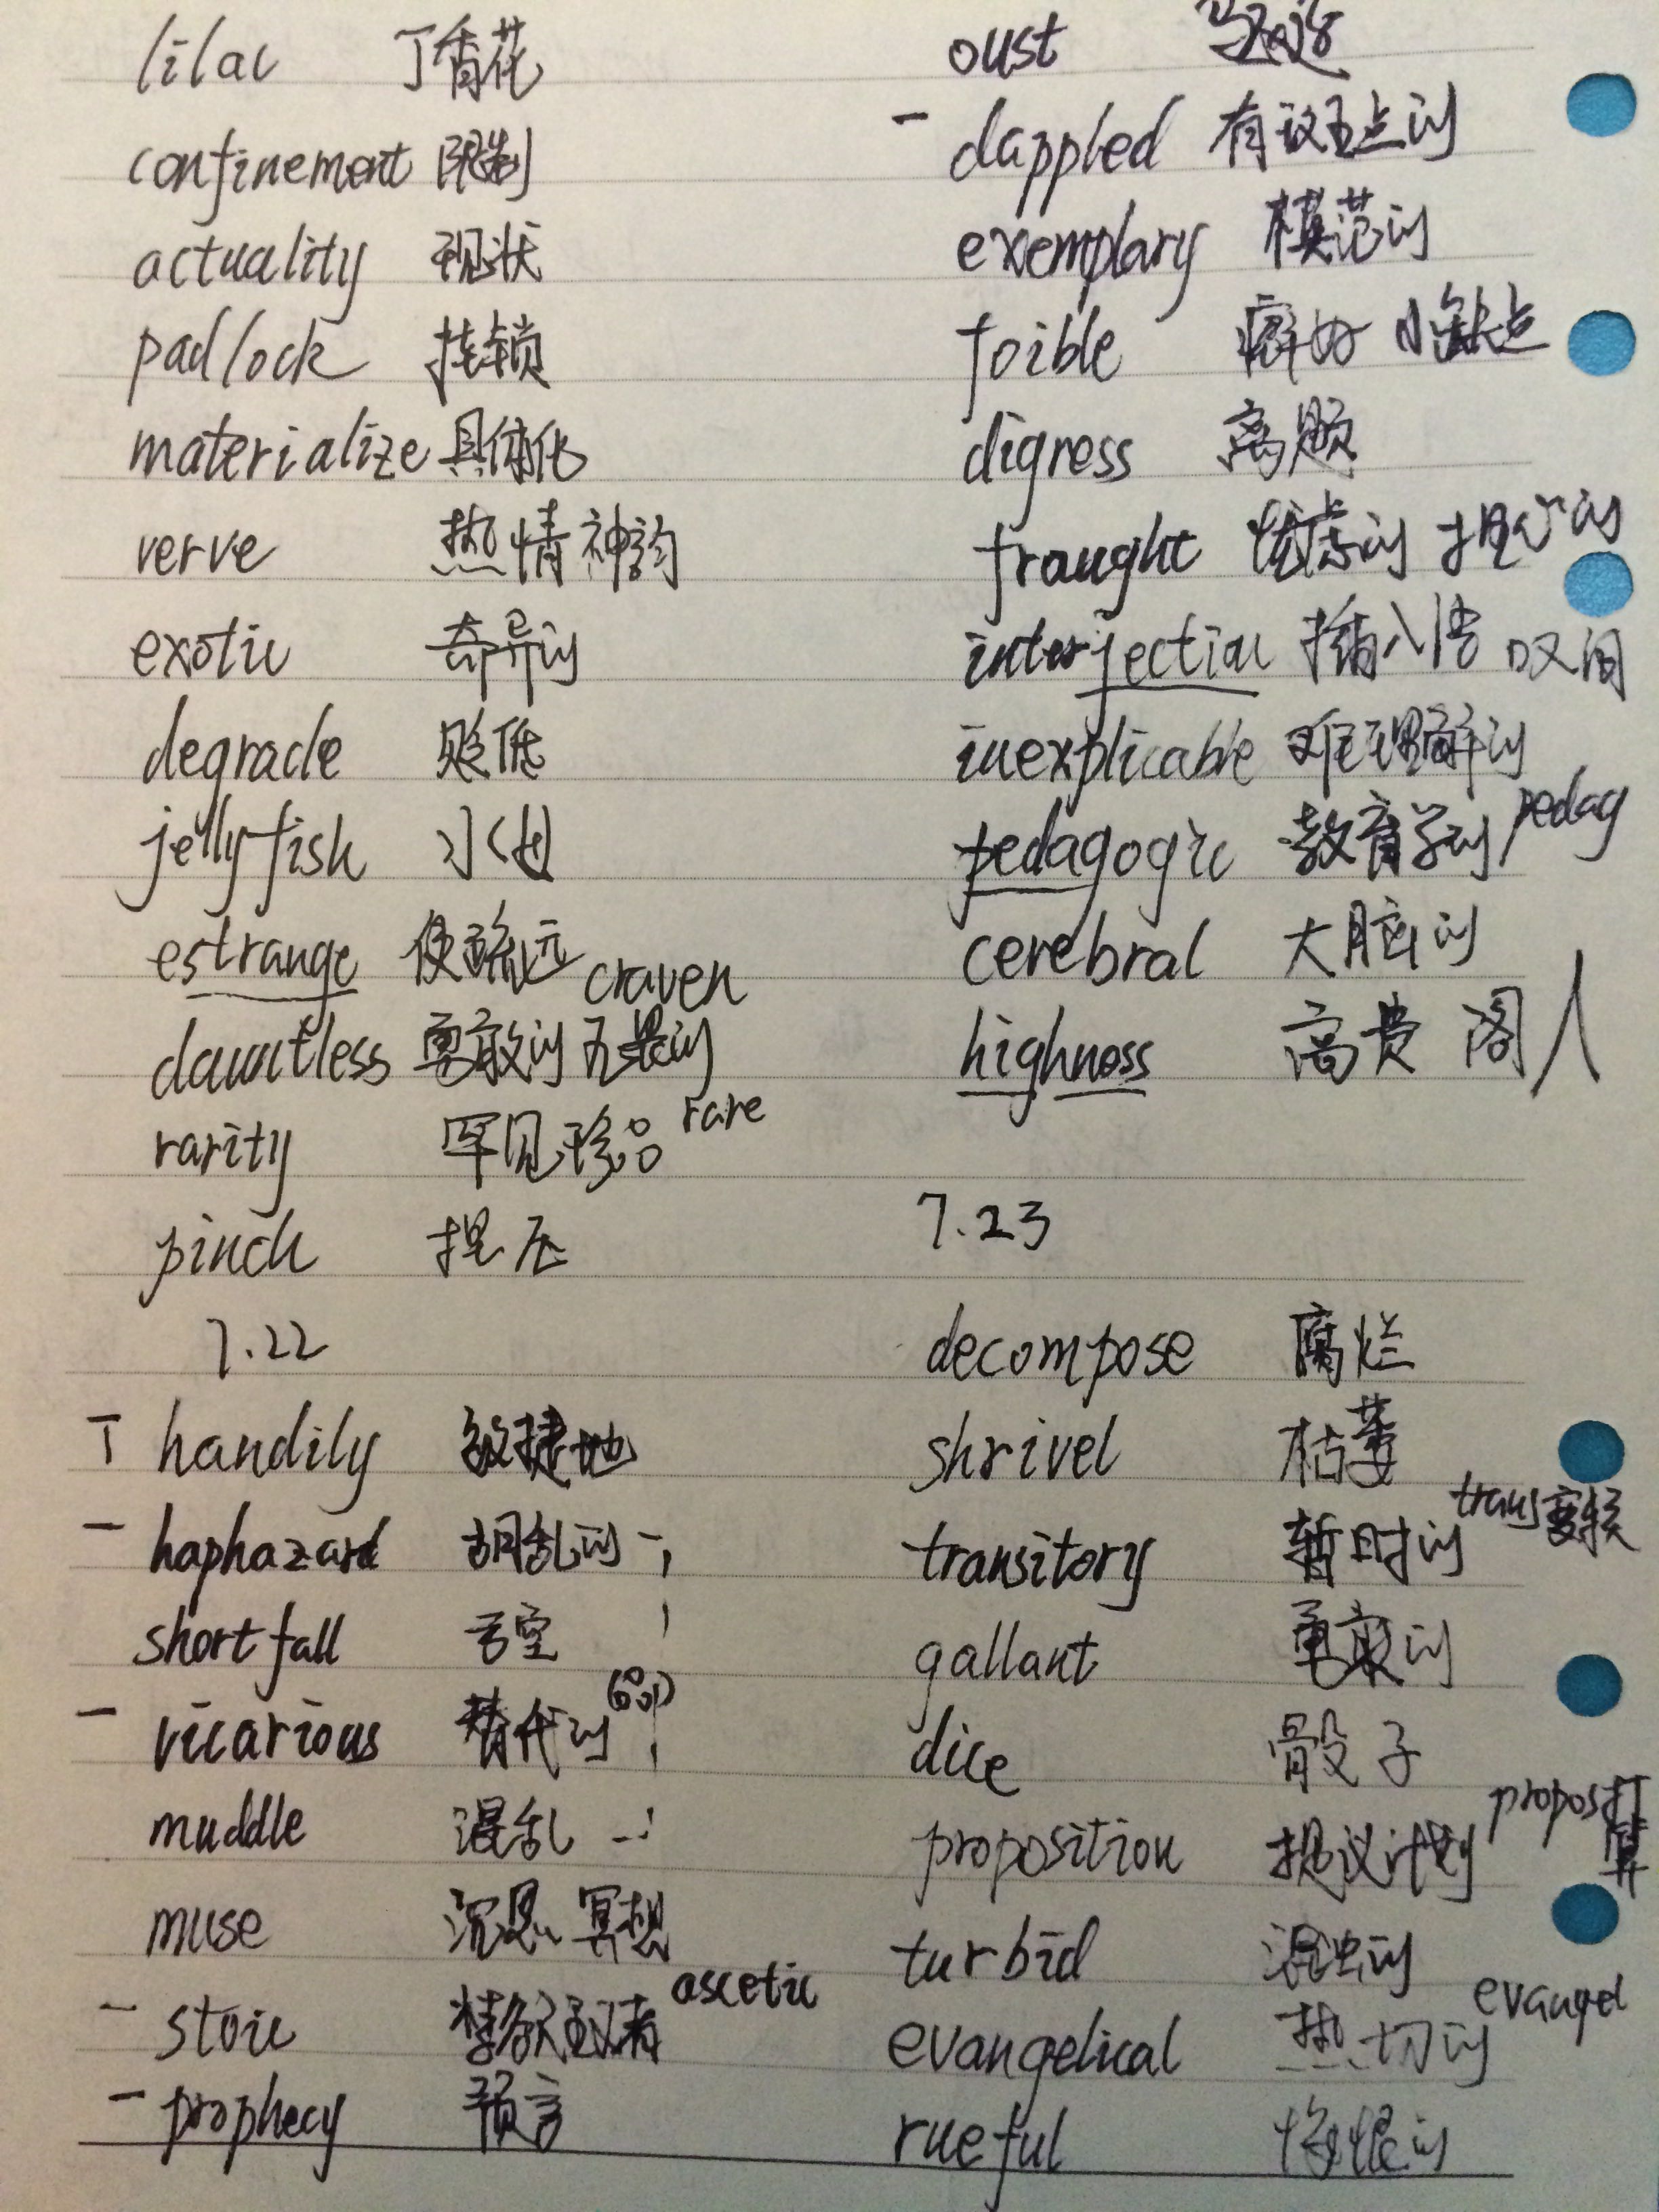 lilac 丁香花
confinement 限制
actuality 现状
padlock 挂锁
materialize 具体化
verve 热情 神韵
exotic 奇异的
degrade 贬低
jellyfish 水母
estrange 使疏远 craven
dauntless 勇敢的 无畏的
rarity 罕见 珍品 rare
pinch 捏 压
7.22
handily 敏捷地
haphazard 胡乱的
shortfall 亏空
vicarious 替代的
muddle 混乱
muse 沉思 冥想
stoic 禁欲主义者 ascetic
prophecy 预言
oust 驱逐
dappled 有斑点的
exemplary 模范的
foible 癖好 小缺点
digress 离题
fraught 忧虑的 担心的
interjection 插入语 叹词
inexplicable 难理解的
pedagogic 教育学的 pedag
cerebral 大脑的
highness 高贵 阁人
7.23
decompose 腐烂
shrivel 枯萎
transitory 暂时的 trans变换
gallant 勇敢的
dice 骰子
proposition 提议 计划 propos打算
turbid 混浊的
evangelical 热切的 evangel
rueful 悔恨的